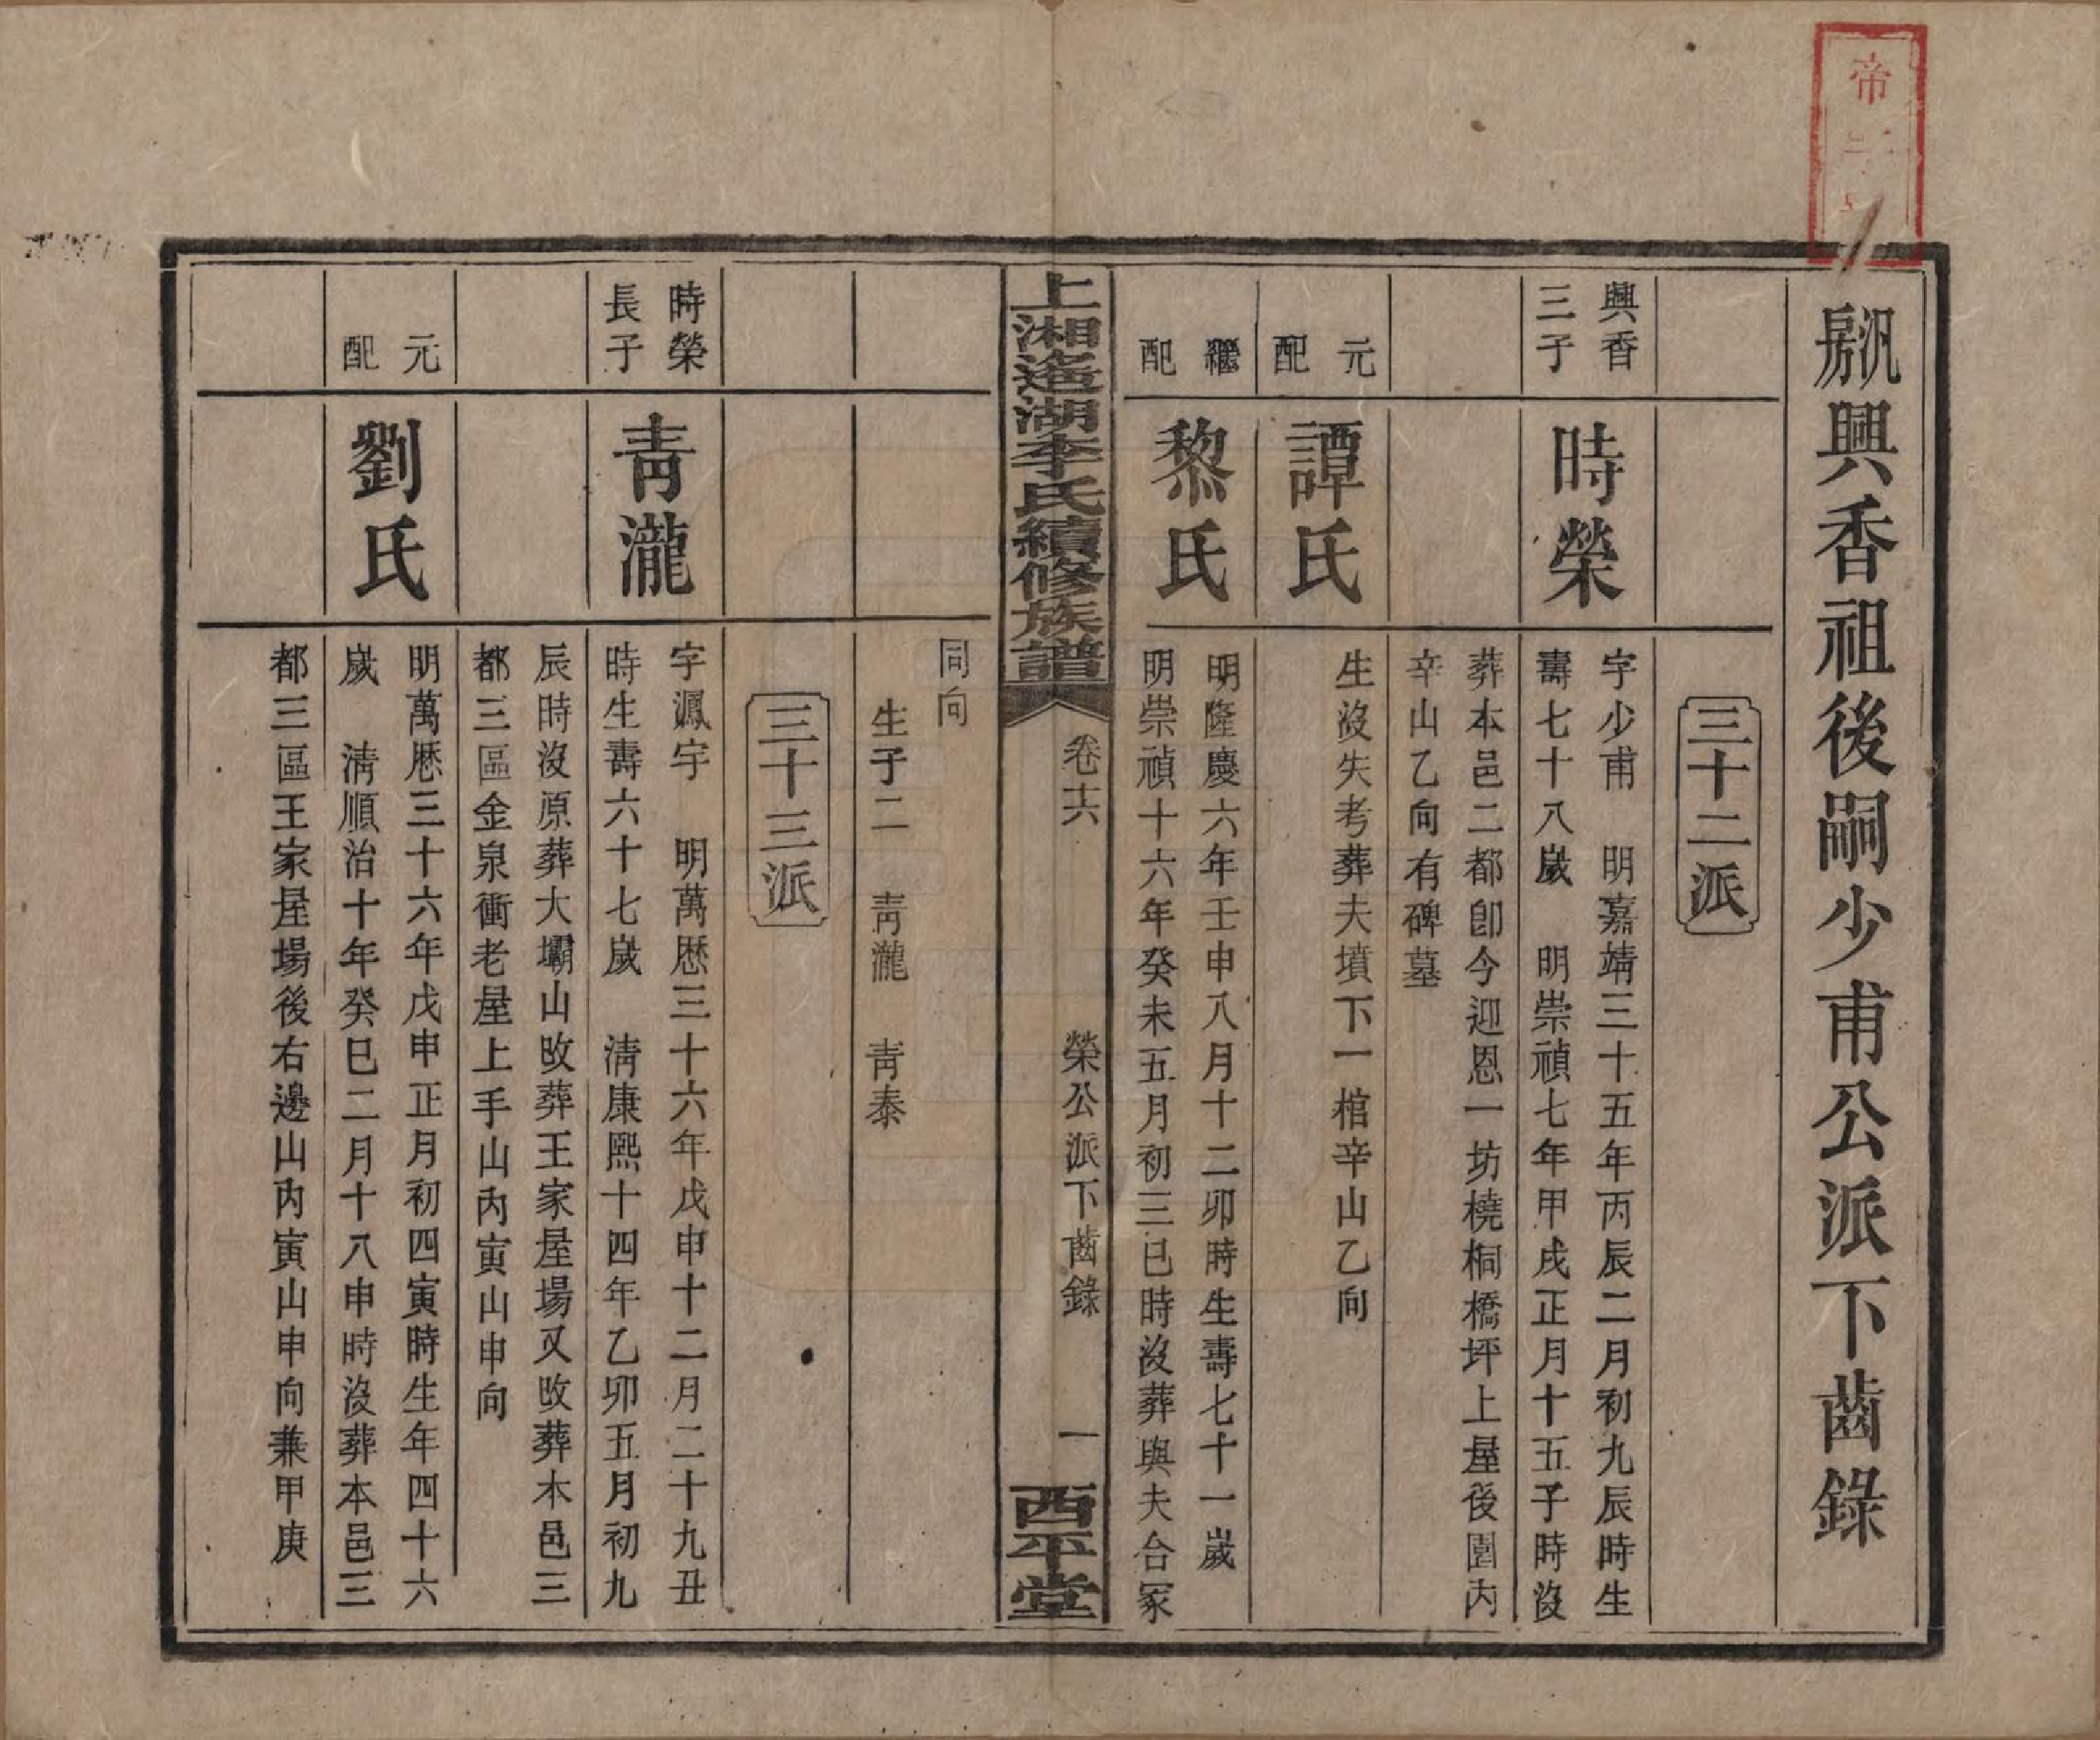 帝
汎房興香祖後嗣少甫公派下齒錄
三十二派
興香
三子
時榮
字少甫　明嘉靖三十五年丙辰二月初九辰時生
壽七十八歲　明崇禎七年甲戌正月十五子時沒
葬本邑二都卽今迎恩一坊橈桐橋坪上屋後園內
辛山乙向有碑墓
元
配
譚氏
生沒失考葬夫墳下一棺辛山乙向
繼
配
黎氏
明隆慶六年壬申八月十二卯時生壽七十一歲
明崇禎十六年癸未五月初三巳時沒葬與夫合冢
上湘 湖李氏續修族譜
卷十六
榮公派下齒錄
一
西平堂
同向
生子二　靑瀧　靑泰
三十三派
時榮
長子
靑瀧
字溤宇　明萬歷三十六年戊申十二月二十九丑
時生壽六十七歲　淸康熙十四年乙卯五月初九
辰時沒原葬大壩山改葬王家屋場又改葬本邑三
都三區金泉衝老屋上手山內寅山申向
元
配
劉氏
明萬歷三十六年戊申正月初四寅時生年四十六
歲　淸順治十年癸巳二月十八申時沒葬本邑三
都三區王家屋場後右邊山內寅山申向兼甲庚